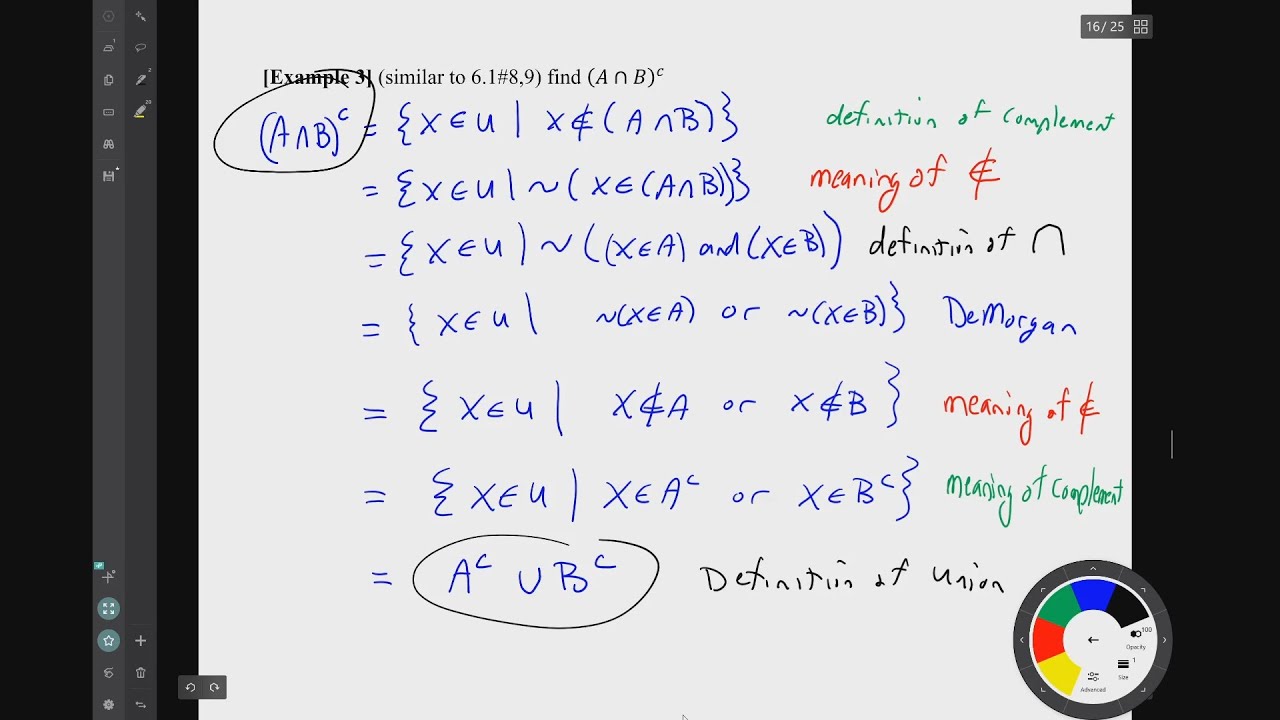 16/25
[Example 3] (similar to 6.1#8,9) find (A ∩ B)ᶜ
(A∩B)ᶜ = {x∈U | x∉(A∩B)} definition of complement
= {x∈U | ~(x∈(A∩B))} meaning of ∉
= {x∈U | ~((x∈A) and (x∈B)) definition of ∩
= {x∈U | ~(x∈A) or ~(x∈B)} DeMorgan
= {x∈U | x∉A or x∉B} meaning of ∉
= {x∈U | x∈Aᶜ or x∈Bᶜ} meaning of complement
= Aᶜ ∪ Bᶜ Definition of union
100
Opacity
1
Size
Advanced